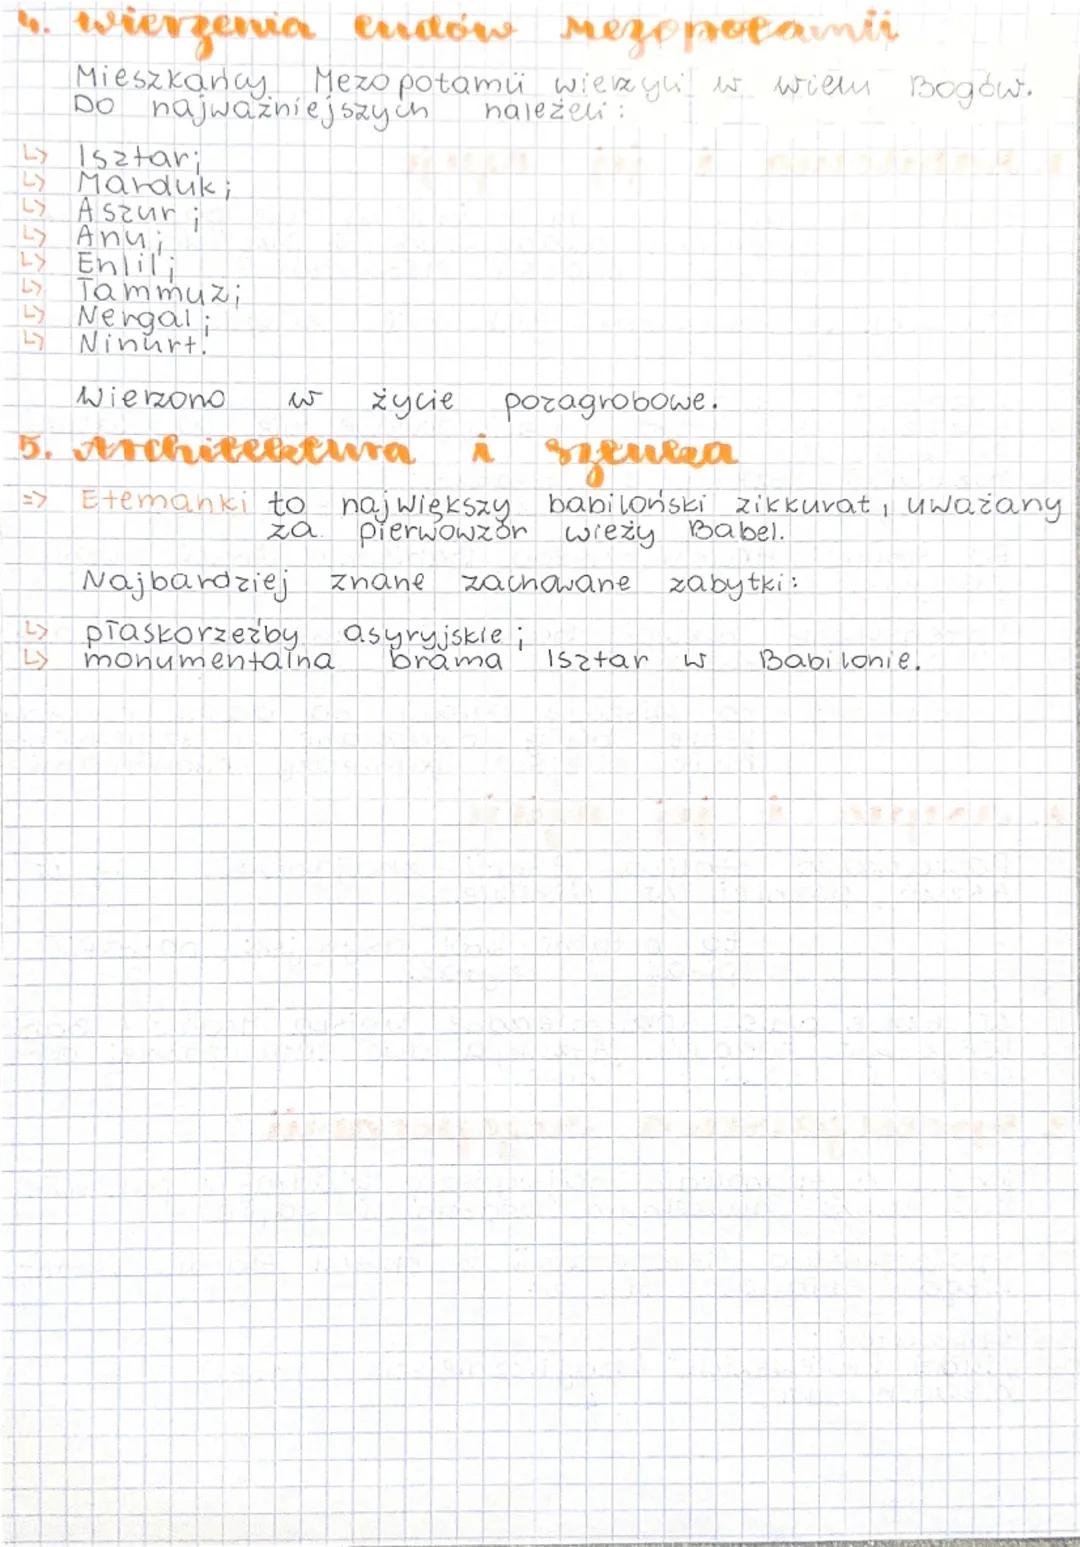 4. Wierzenia ludów Mezopotamii
Mieszkańcy Mezopotamii wierzyli w wielu Bogów.
Do najważniejszych należeli:
↳ Isztar;
↳ Marduk;
↳ Aszur;
↳ Anu;
↳ Enlil;
↳ Tammuz;
↳ Nergal;
↳ Ninurt.
Wierzono w życie pozagrobowe.
5. Architektura i sztuka
=> Etemanki to największy babiloński zikkurat, uważany
za pierwowzór wieży Babel.
Najbardziej znane zachowane zabytki:
↳ płaskorzeźby asyryjskie;
↳ monumentalna brama Isztar w Babilonie.